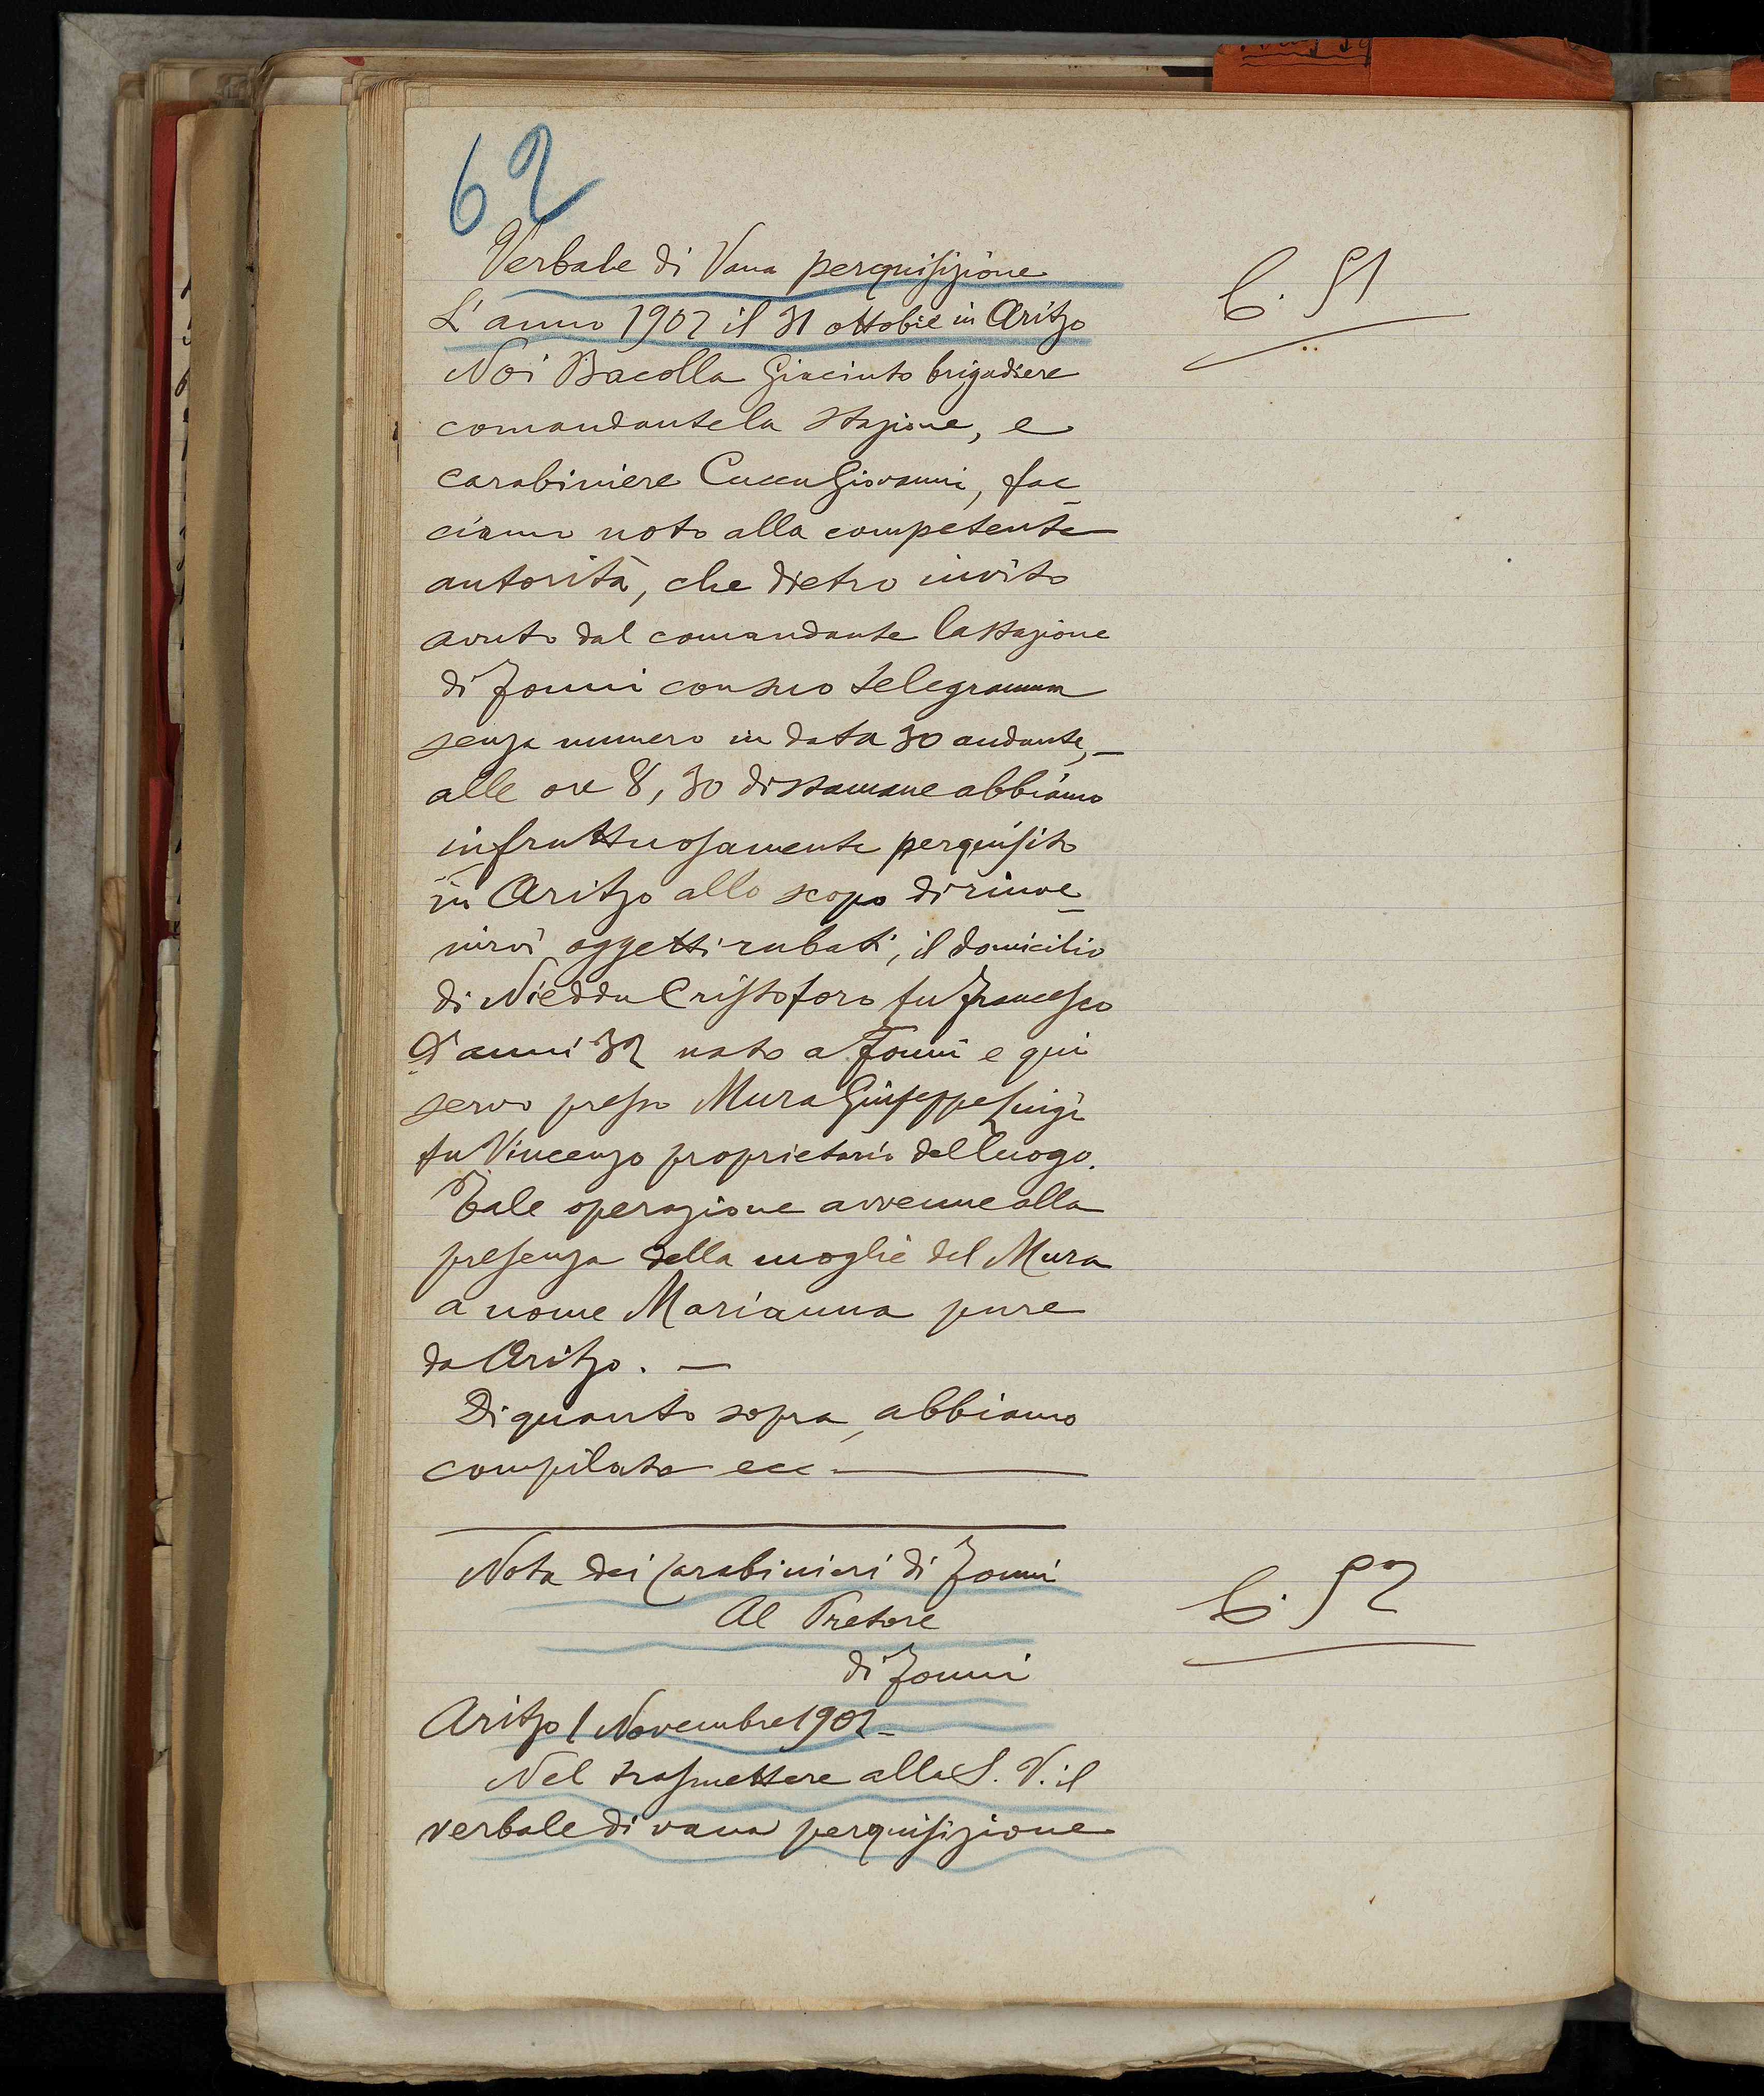 62
Verbale di Vana perquisizione
C. 51
L'anno 1902 il 31 ottobre in Aritzo
Noi Bacolla Giacinto brigadiere
comandante la stazione, e
carabiniere Cuccu Giovanni, fac_
ciamo noto alla competente
autorità, che dietro invito
avuto dal comandante la stazione
di Fonni con suo telegramma
senza numero in data 30 andante, _
alle ore 8,30 di stamane abbiamo
infruttuosamente perquisito
in Aritzo allo scopo di rinve_
nirvi oggetti rubati, il domicilio
di Nieddu Cristoforo fu Francesco
d'anni 32 nato a Fonni e qui
servo presso Mura Giuseppe Luigi
fu Vincenzo proprietario del luogo.
Tale operazione avvenne alla
presenza della moglie del Mura
a nome Marianna pure
da Aritzo. —
Di quanto sopra, abbiamo
compilato ecc —
Nota dei Carabinieri di Fonni
C. 52
Al Pretore
di Fonni
Aritzo 1 Novembre 1902_
Nel trasmettere alla S. V. il
verbale di vana perquisizione